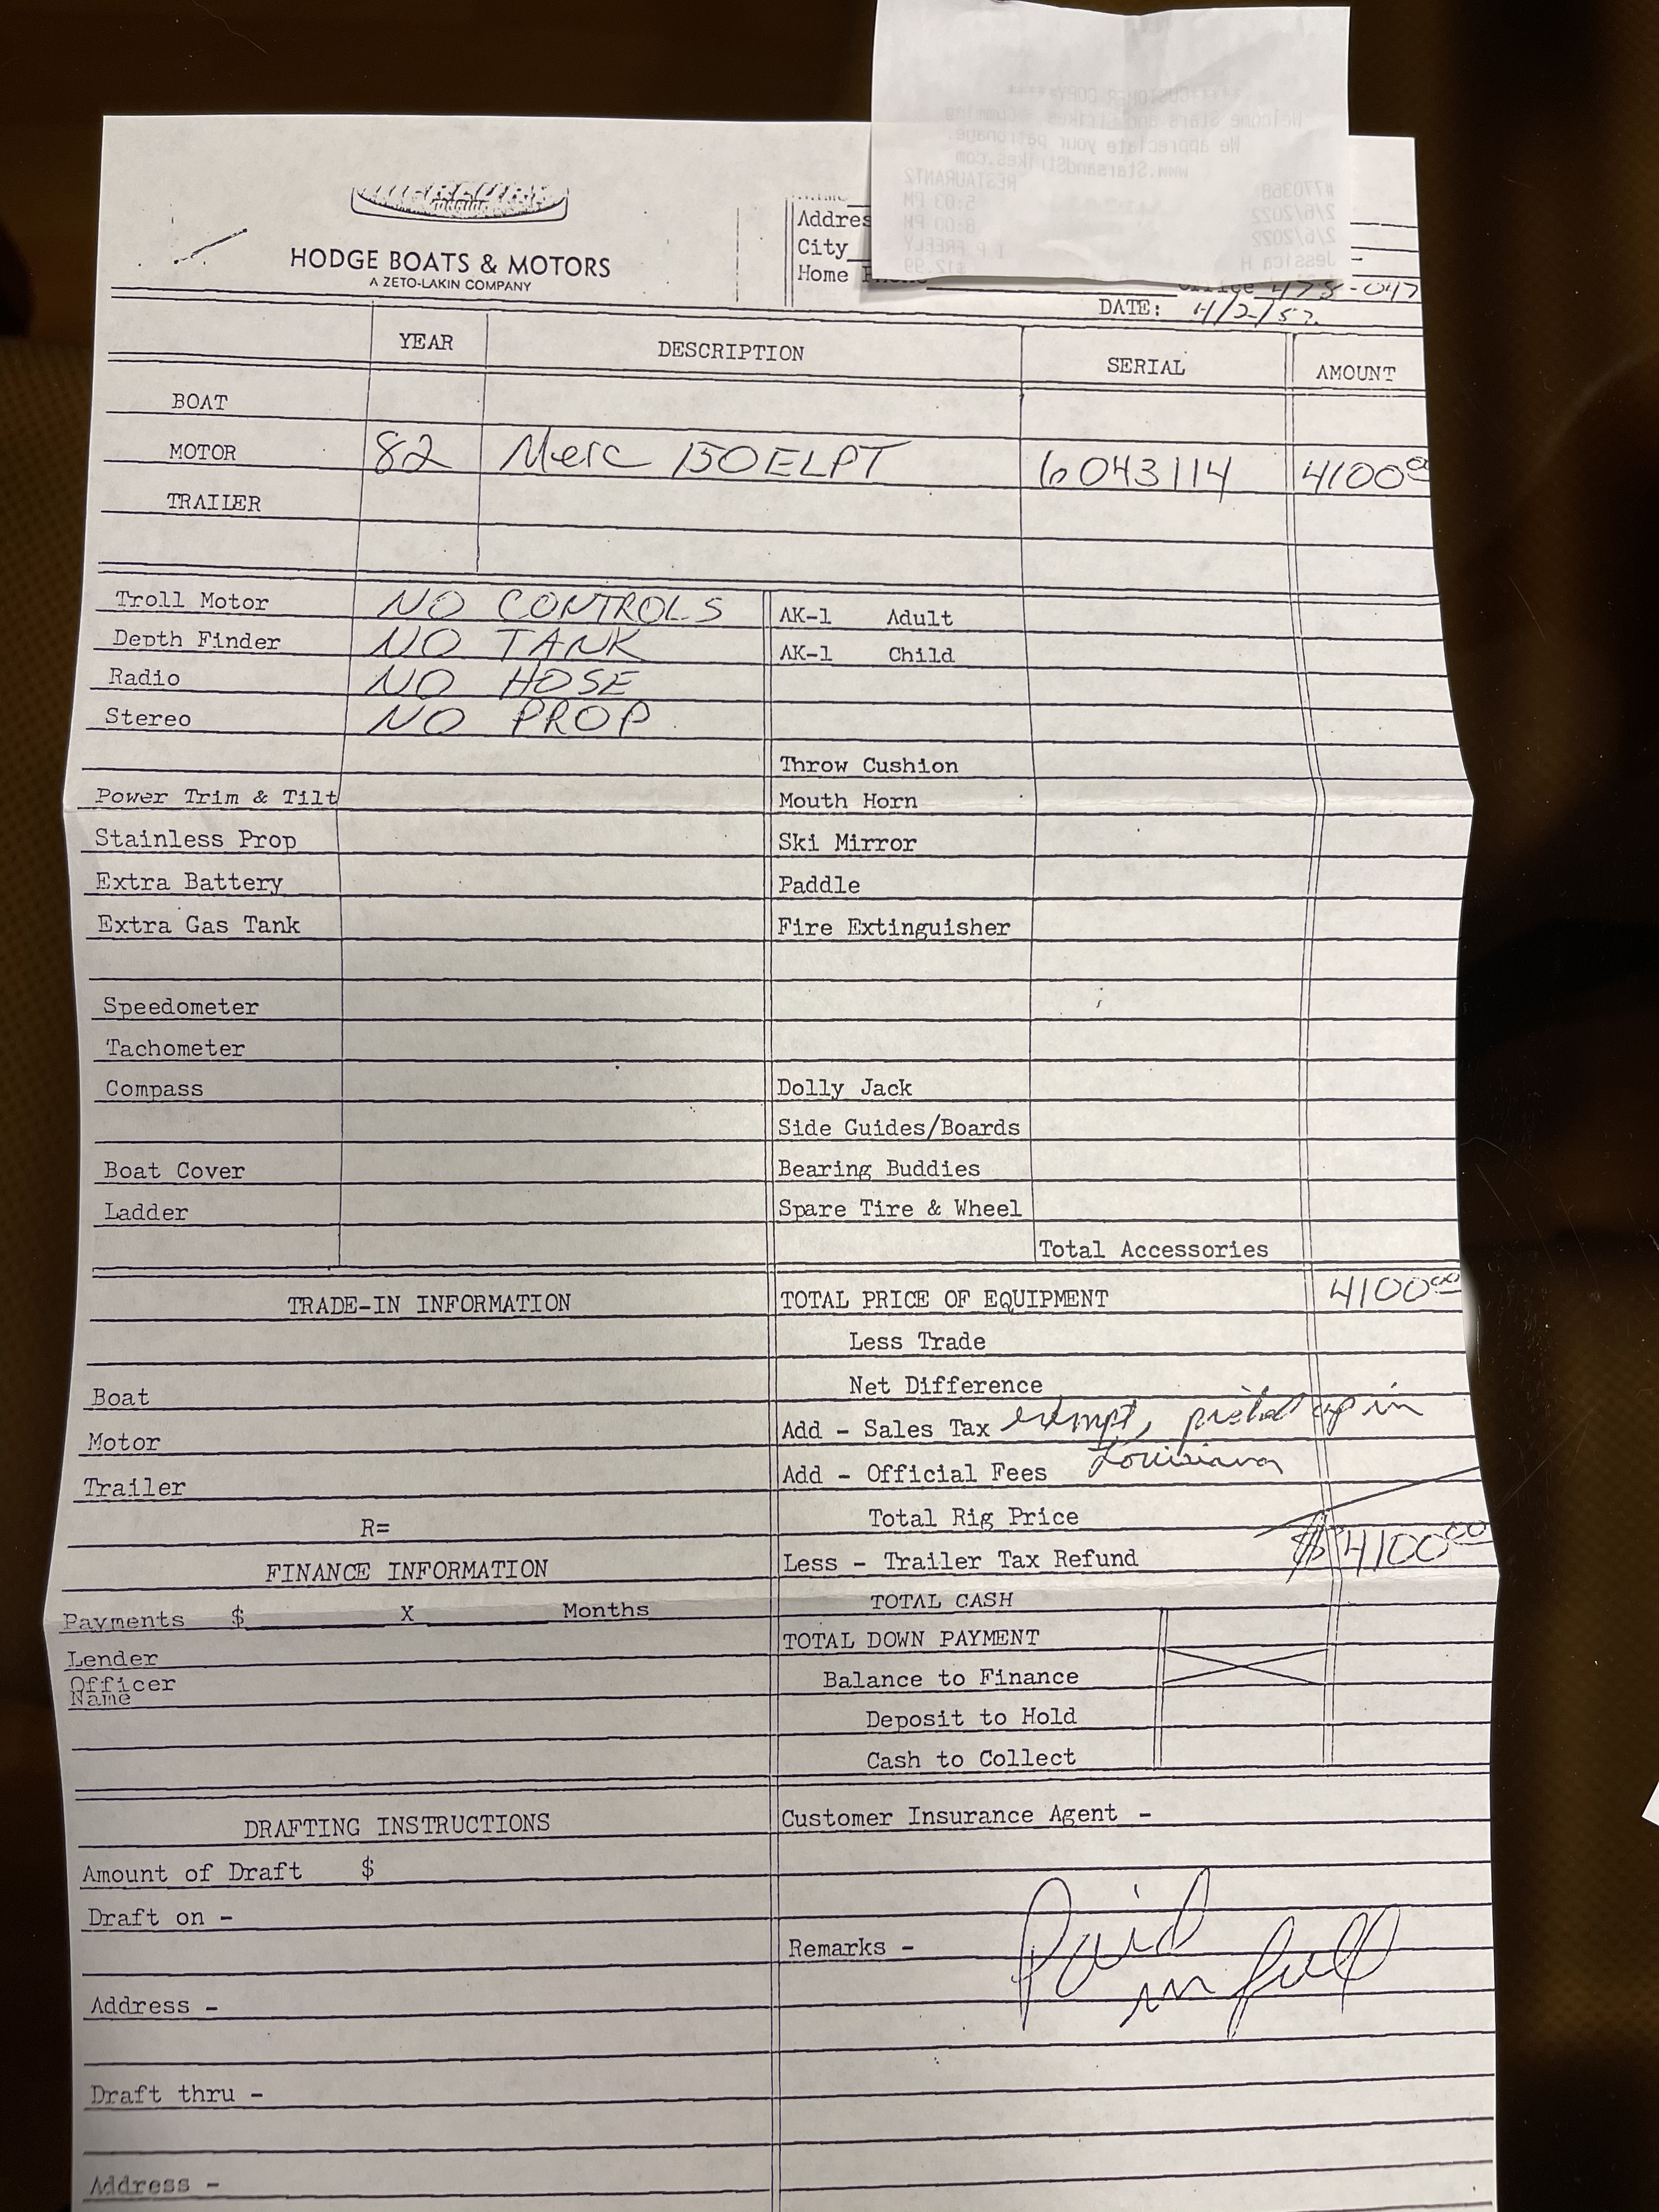 *****CUSTOMER COPY*****
Welcome Stars and Strikes - Cumming
We appreciate your patronage.
www.StarsandStrikes.com
#770368 RESTAURANT2
2/6/2022 5:03 PM
2/6/2022 8:00 PM
Jessica H I P FREELY
$12.99
HODGE BOATS & MOTORS
A ZETO-LAKIN COMPANY
Addres
City
Home
478-047
DATE: 4/2/
YEAR DESCRIPTION SERIAL AMOUNT
BOAT
MOTOR 82 Merc 150ELPT 6043114 4100⁰⁰
TRAILER
Troll Motor NO CONTROLS AK-1 Adult
Depth Finder NO TANK AK-1 Child
Radio NO HOSE
Stereo NO PROP
Throw Cushion
Power Trim & Tilt Mouth Horn
Stainless Prop Ski Mirror
Extra Battery Paddle
Extra Gas Tank Fire Extinguisher
Speedometer
Tachometer
Compass Dolly Jack
Side Guides/Boards
Boat Cover Bearing Buddies
Ladder Spare Tire & Wheel
Total Accessories
TRADE-IN INFORMATION TOTAL PRICE OF EQUIPMENT 4100⁰⁰
Less Trade
Boat Net Difference
Motor Add - Sales Tax exempt, picked up in
Trailer Add - Official Fees Louisiana
R= Total Rig Price
FINANCE INFORMATION Less - Trailer Tax Refund $4100⁰⁰
Payments $ X Months TOTAL CASH
TOTAL DOWN PAYMENT
Lender Balance to Finance
Officer
Name
Deposit to Hold
Cash to Collect
DRAFTING INSTRUCTIONS Customer Insurance Agent -
Amount of Draft $
Draft on -
Remarks - Paid
in full
Address -
Draft thru -
Address -